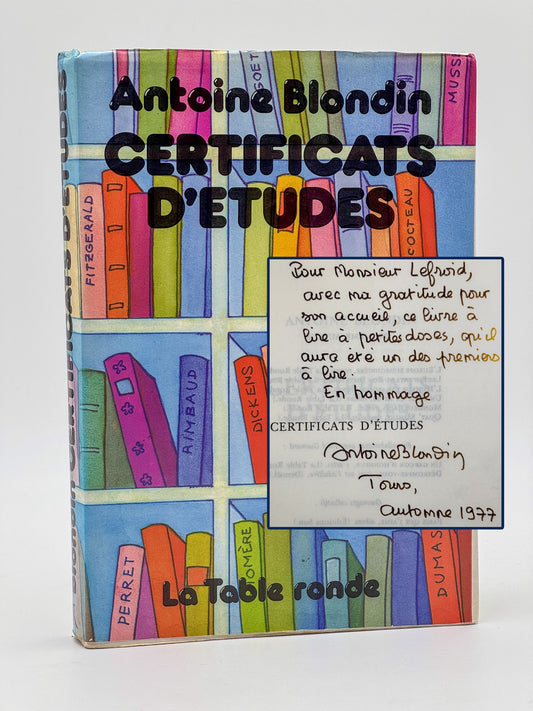 Antoine Blondin
CERTIFICATS
D'ETUDES
GOET
MUSS
FITZGERALD
COCTEAU
RIMBAUD
DICKENS
PERRET
OMÈRE
DUMAS
La Table ronde
CERTIFICATS D'ETUDES
Pour Monsieur Lefroid,
avec ma gratitude pour
son accueil, ce livre à
lire à petites doses, qu'il
aura été un des premiers
à lire.
En hommage
CERTIFICATS D'ÉTUDES
Antoine Blondin
Tours,
automne 1977